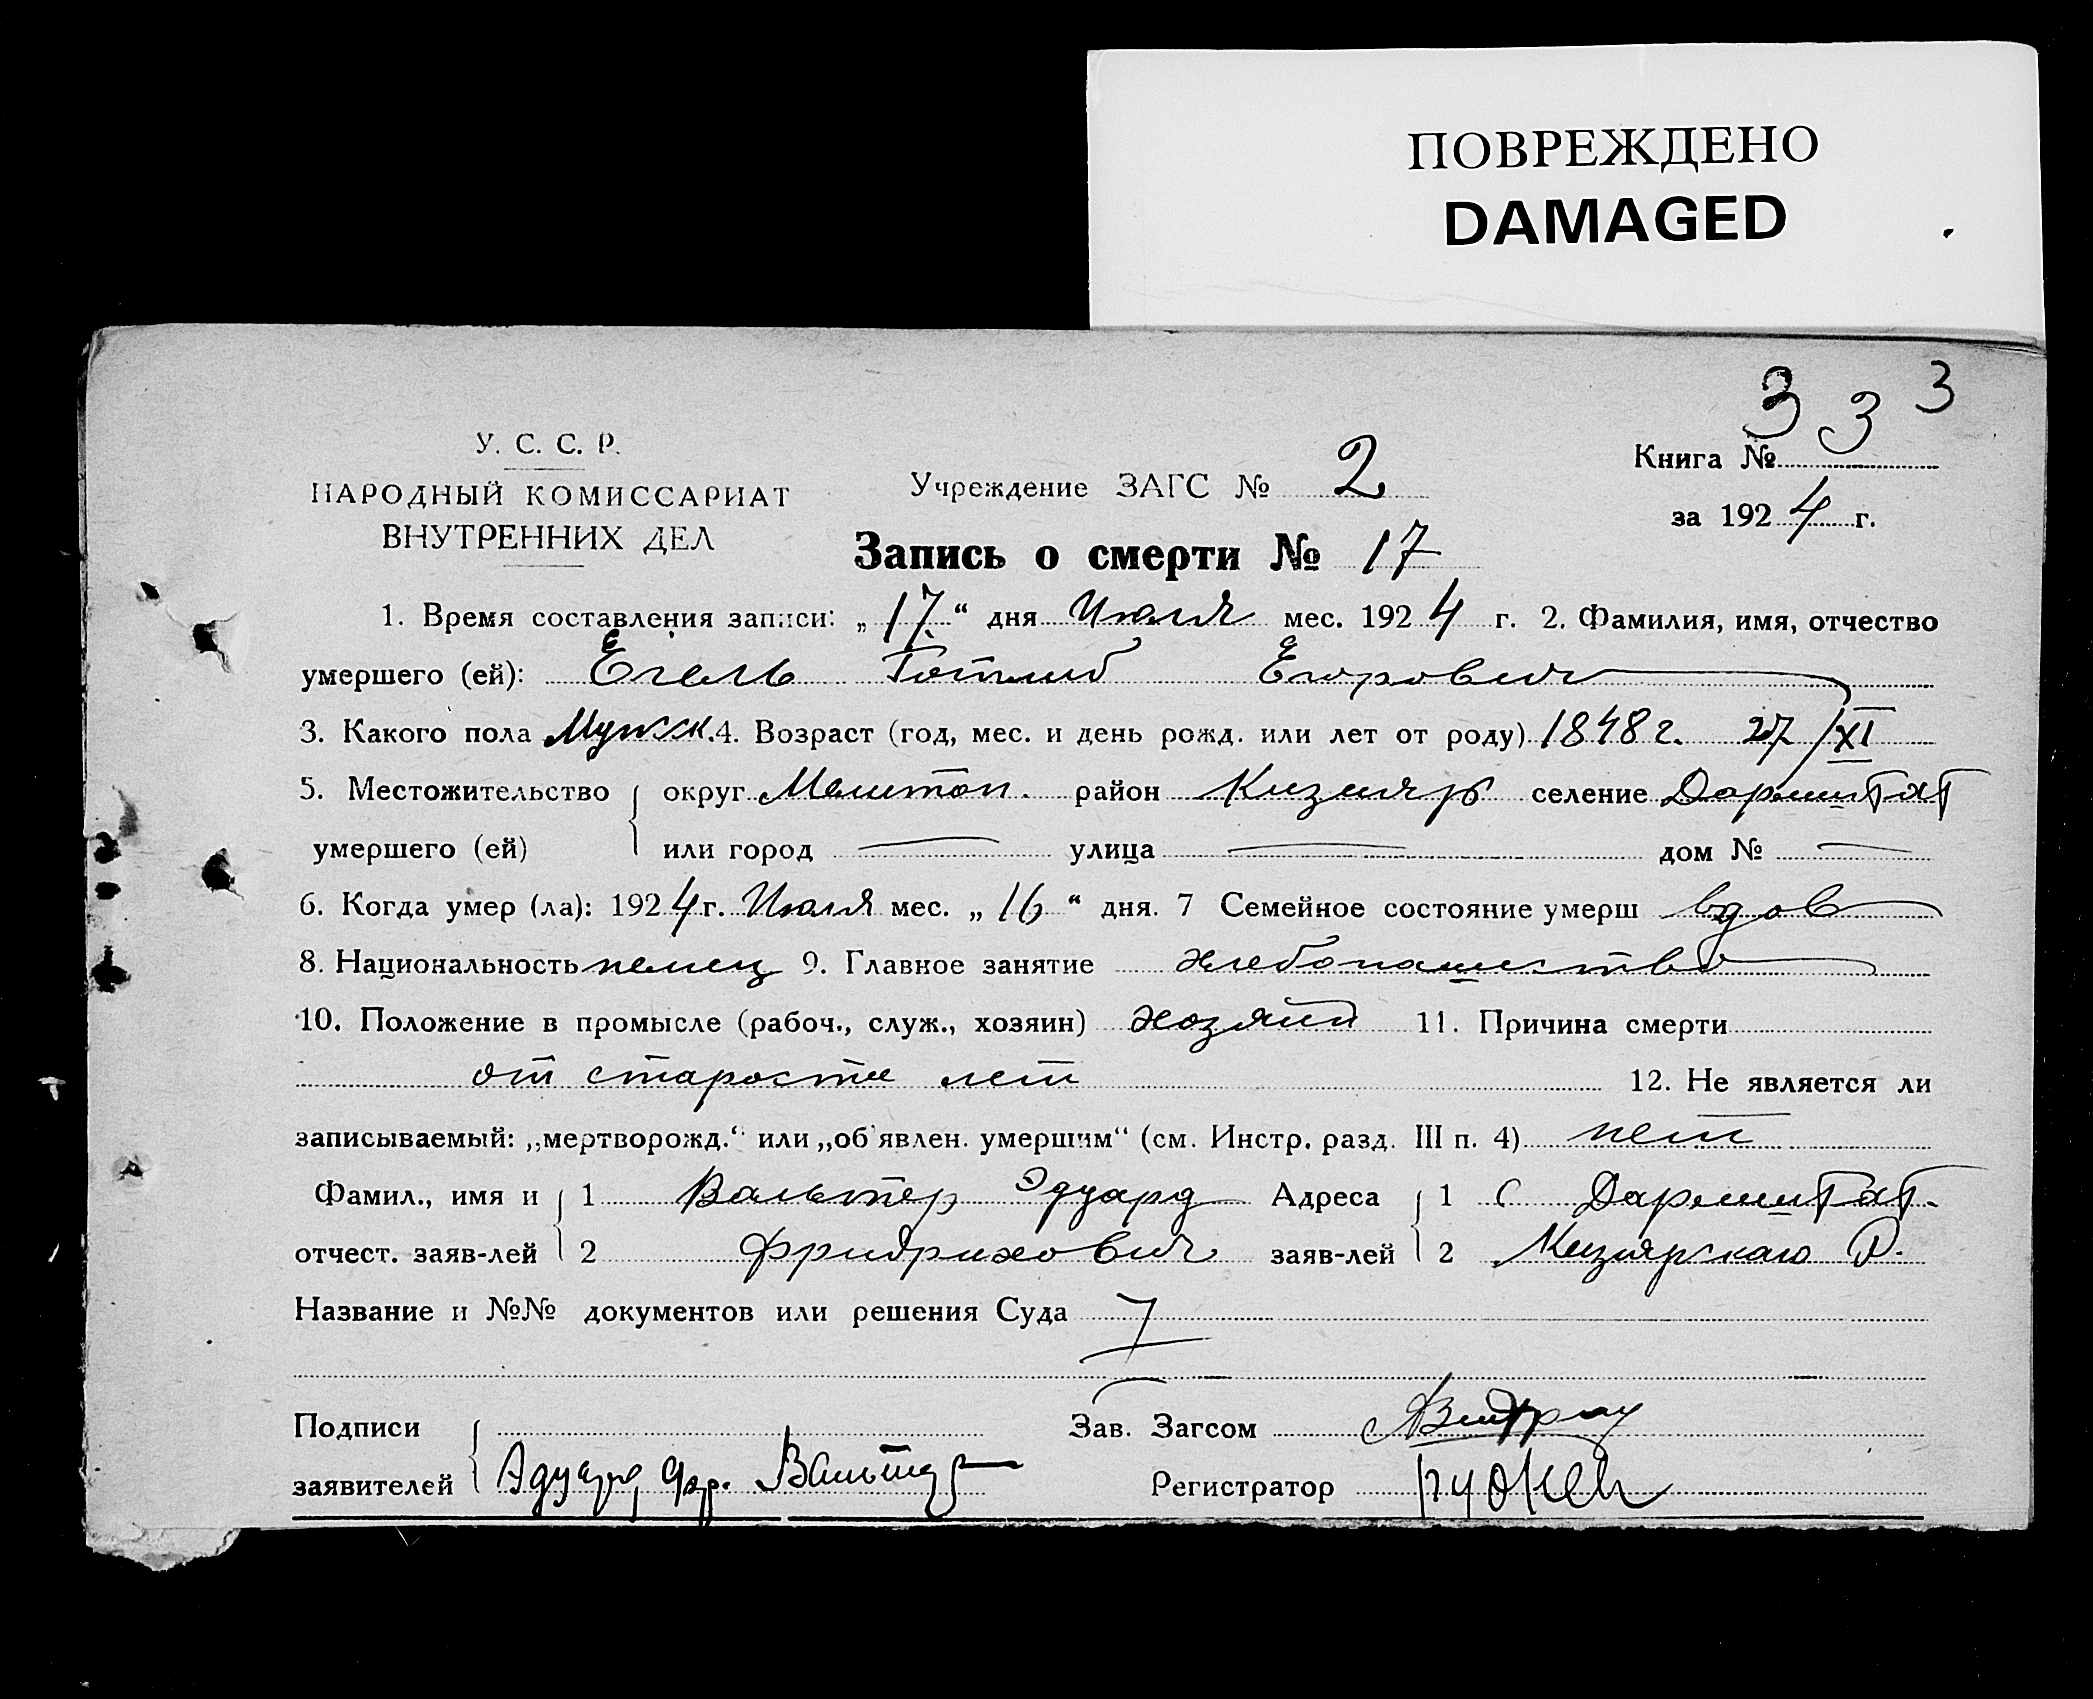 ПОВРЕЖДЕНО
DAMAGED
3 3 3
У. С. С. Р.
НАРОДНЫЙ КОМИССАРИАТ
ВНУТРЕННИХ ДЕЛ
Учреждение ЗАГС № 2
Книга №
за 1924 г.
Запись о смерти № 17
1. Время составления записи: „17“ дня Июля мес. 1924 г. 2. Фамилия, имя, отчество
умершего (ей): Егель Готлиб Егорович
3. Какого пола Мужск. 4. Возраст (год, мес. и день рожд. или лет от роду) 1848 г. 27/XI
5. Местожительство округ Мелитоп. район Кизияр селение Дармштат
умершего (ей) или город — улица — дом № —
6. Когда умер (ла): 1924 г. Июля мес. „16“ дня. 7 Семейное состояние умерш вдов
8. Национальность немец 9. Главное занятие хлебопашество
10. Положение в промысле (рабоч., служ., хозяин) хозяин 11. Причина смерти
от старости лет 12. Не является ли
записываемый: „мертворожд.“ или „об'явлен. умершим“ (см. Инстр. разд. III п. 4) нет
Фамил., имя и 1 Вальтер Эдуард Адреса 1 с Дармштат.
отчест. заяв-лей 2 Фридрихович заяв-лей 2 Кизиярскаго Р.
Название и №№ документов или решения Суда
Подписи Зав. Загсом
заявителей Эдуард Фр. Вальтер Регистратор